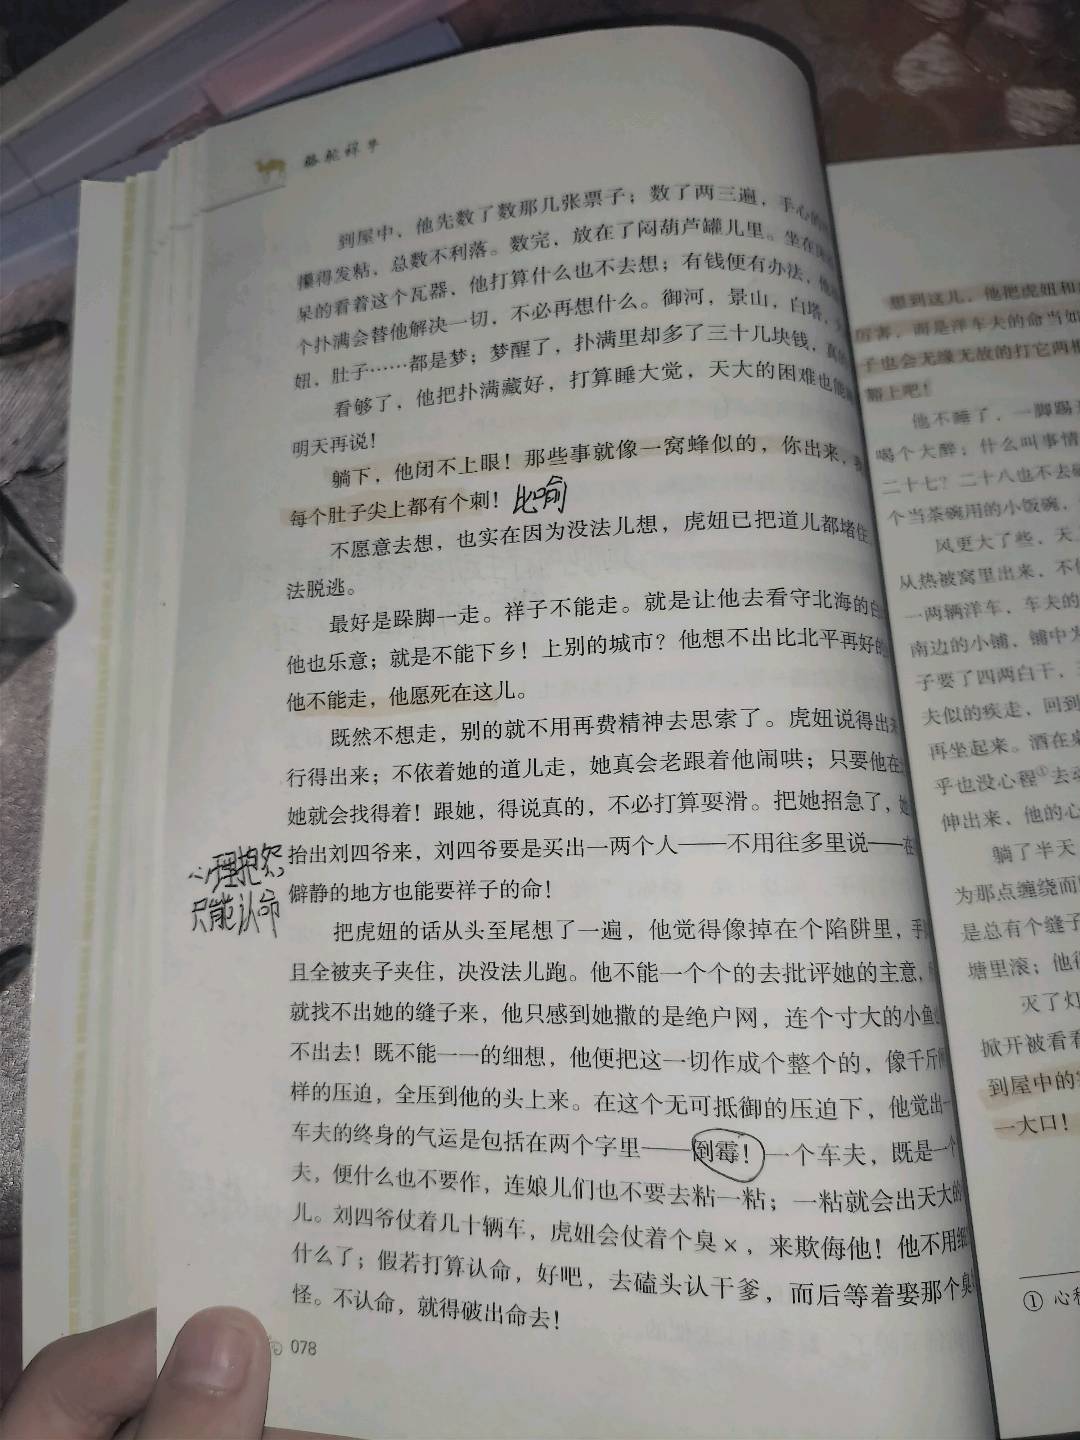 骆驼祥子
到屋中，他先数了数那几张票子；数了两三遍，手心的
攥得发粘，总数不利落。数完，放在了闷葫芦罐儿里。坐在
呆的看着这个瓦器，他打算什么也不去想；有钱便有办法，他
个扑满会替他解决一切，不必再想什么。御河，景山，白塔，
妞，肚子……都是梦；梦醒了，扑满里却多了三十几块钱，真的
看够了，他把扑满藏好，打算睡大觉，天大的困难也能
明天再说！
躺下，他闭不上眼！那些事就像一窝蜂似的，你出来，
每个肚子尖上都有个刺！ 比喻
不愿意去想，也实在因为没法儿想，虎妞已把道儿都堵住
法脱逃。
最好是跺脚一走。祥子不能走。就是让他去看守北海的白
他也乐意；就是不能下乡！上别的城市？他想不出比北平再好的
他不能走，他愿死在这儿。
既然不想走，别的就不用再费精神去思索了。虎妞说得出来
行得出来；不依着她的道儿走，她真会老跟着他闹哄；只要他在
她就会找得着！跟她，得说真的，不必打算耍滑。把她招急了，她
抬出刘四爷来，刘四爷要是买出一两个人——不用往多里说——在
僻静的地方也能要祥子的命！
心理抱怨
只能认命
把虎妞的话从头至尾想了一遍，他觉得像掉在个陷阱里，手
且全被夹子夹住，决没法儿跑。他不能一个个的去批评她的主意，
就找不出她的缝子来，他只感到她撒的是绝户网，连个寸大的小鱼
不出去！既不能一一的细想，他便把这一切作成个整个的，像千斤
样的压迫，全压到他的头上来。在这个无可抵御的压迫下，他觉出一
车夫的终身的气运是包括在两个字里——倒霉！一个车夫，既是一个
夫，便什么也不要作，连娘儿们也不要去粘一粘；一粘就会出天大的
儿。刘四爷仗着几十辆车，虎妞会仗着个臭×，来欺侮他！他不用细
什么了；假若打算认命，好吧，去磕头认干爹，而后等着娶那个臭
怪。不认命，就得破出命去！
078
想到这儿，他把虎妞和
厉害，而是洋车夫的命当如
子也会无缘无故的打它两棍
豁上吧！
他不睡了，一脚踢
喝个大醉；什么叫事情
二十七？二十八也不去
个当茶碗用的小饭碗，
风更大了些，天
从热被窝里出来，不
一两辆洋车，车夫的
南边的小铺，铺中
子要了四两白干，
夫似的疾走，回到
再坐起来。酒在桌
乎也没心程①去
伸出来，他的心
躺了半天
为那点缠绕而
是总有个缝子
塘里滚；他
灭了灯
掀开被看看
到屋中的
一大口！
① 心